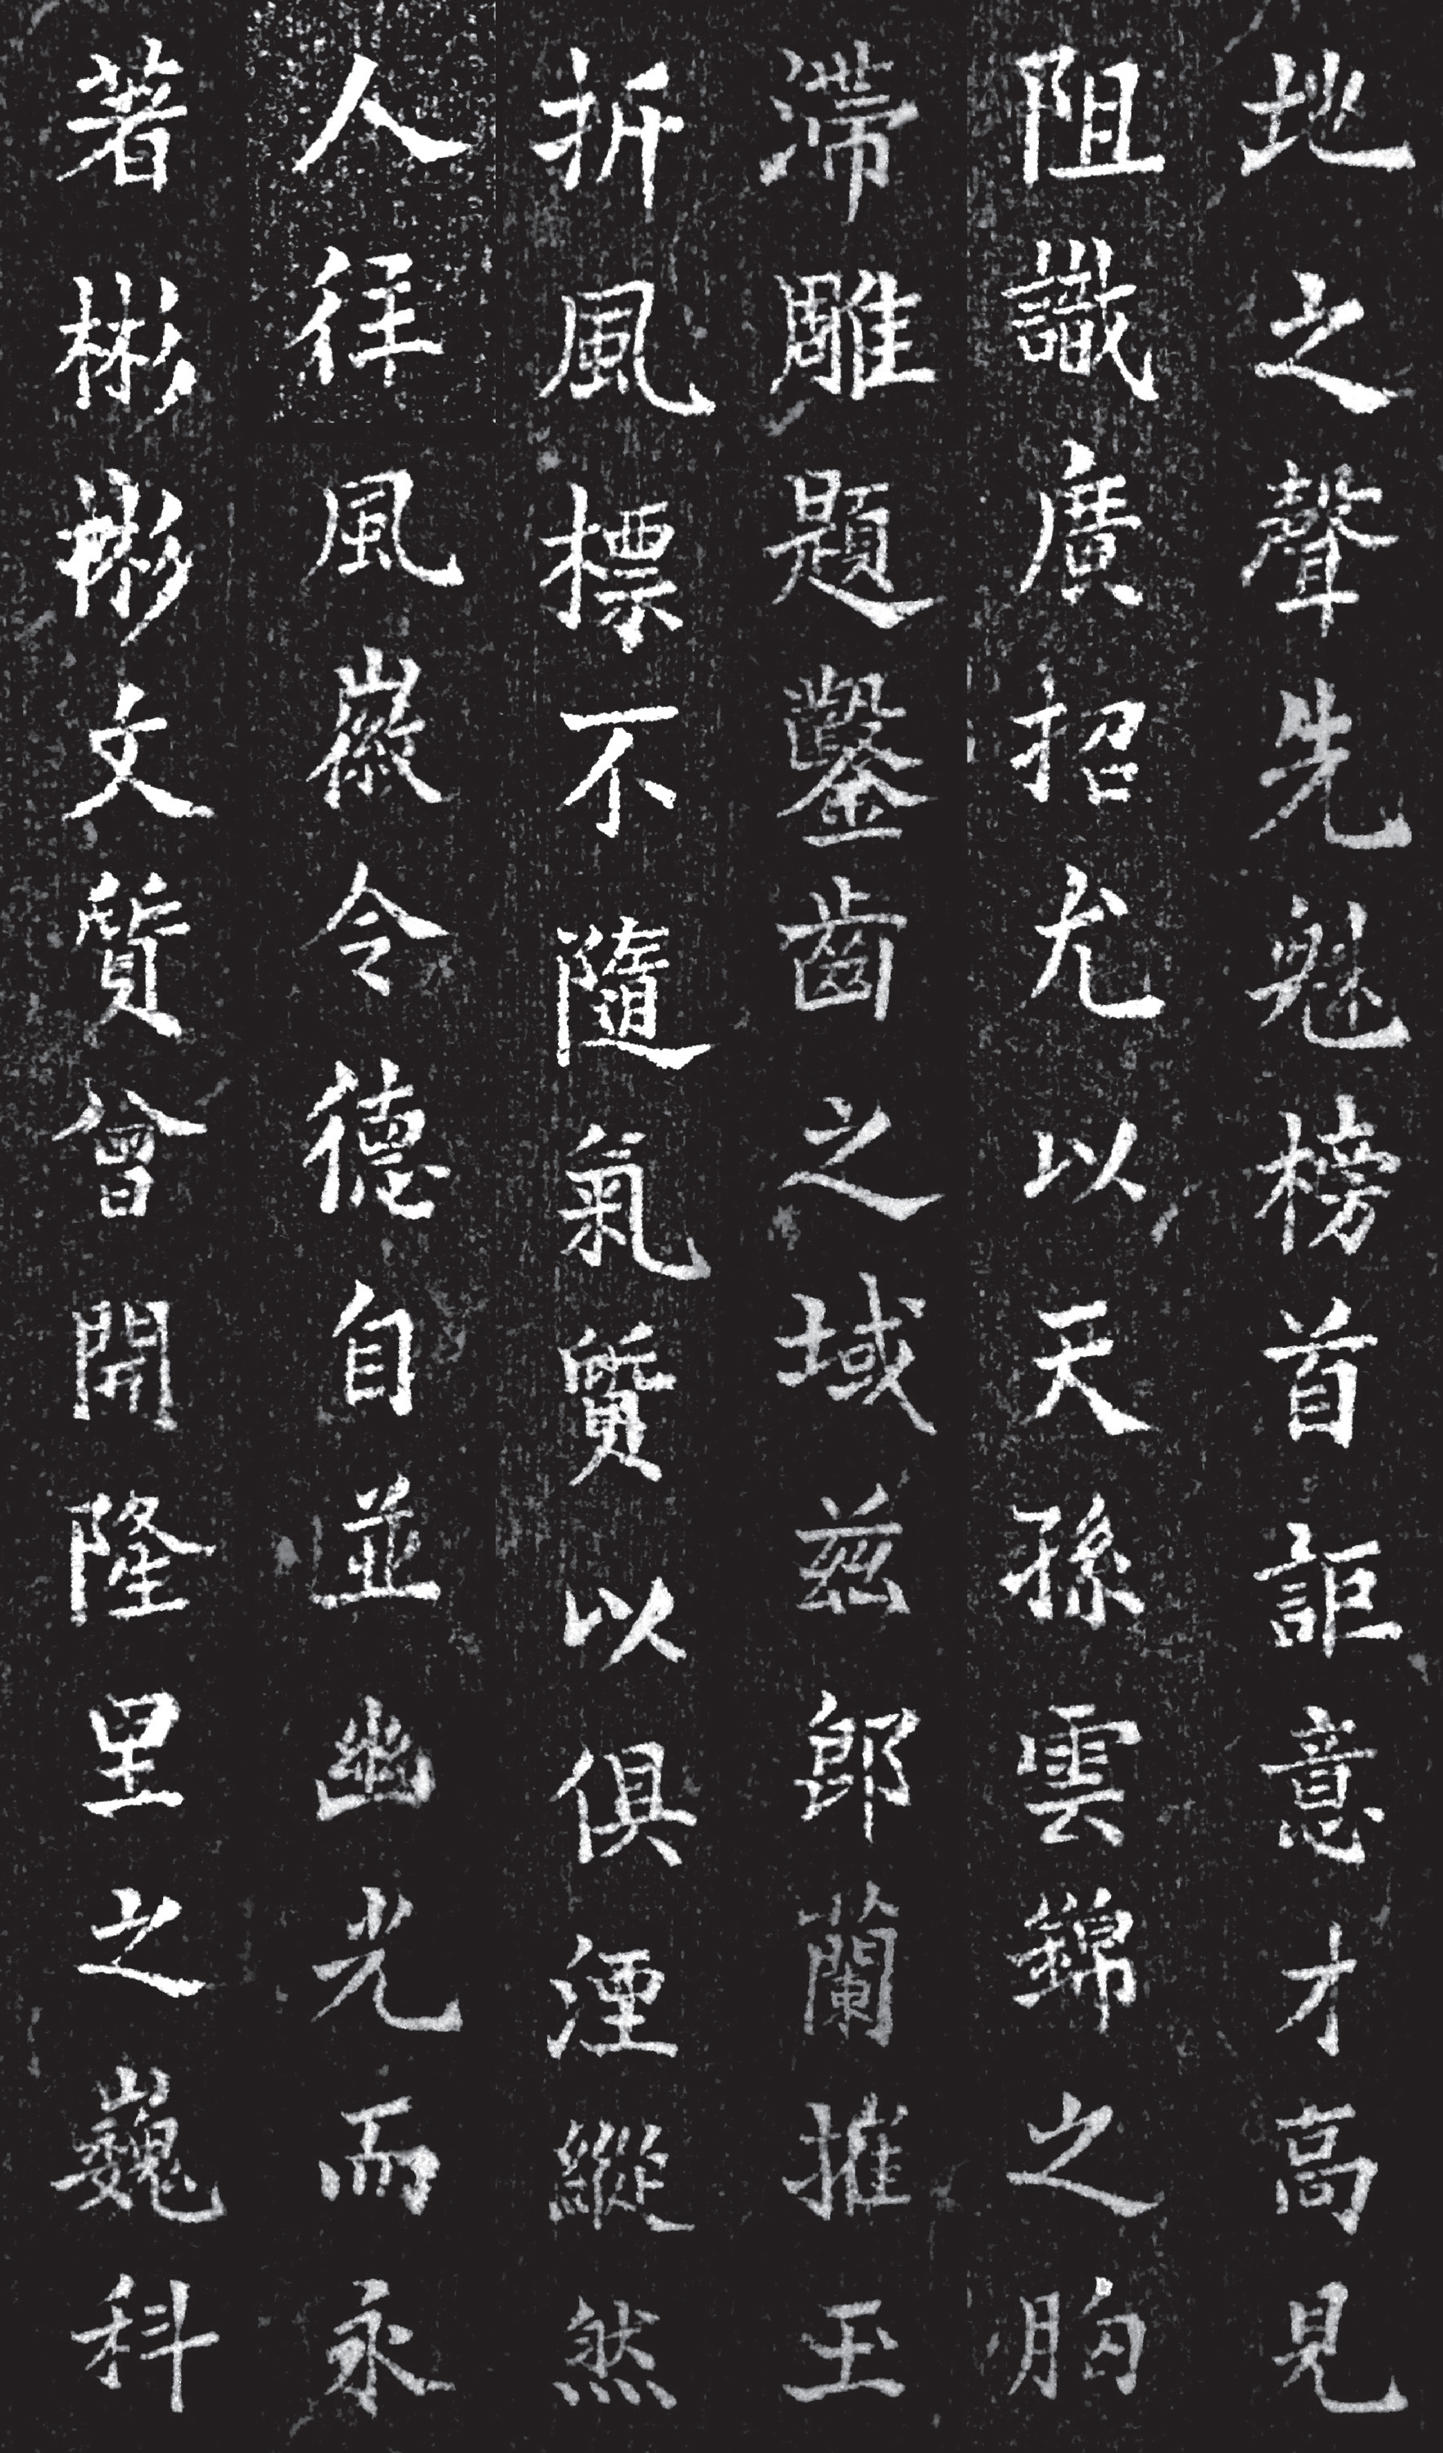 地之聲先魁榜首詎意才高見
阻識廣招尤以天孫雲錦之胸
滯雕題鑿齒之域茲郎蘭摧玉
折風標不隨氣質以俱湮縱然
人往風徽令德自並幽光而永
著彬彬文質曾開隆里之巍科